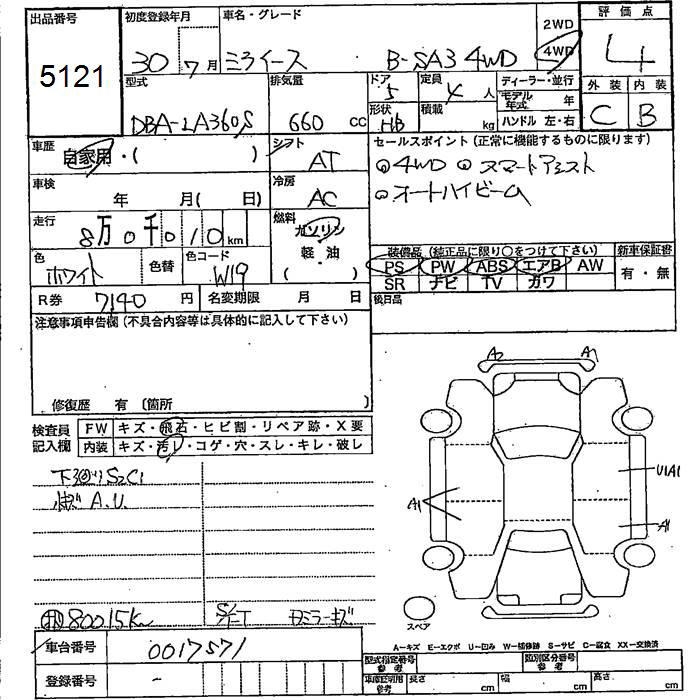 出品番号 初度登録年月 車名・グレード 2WD 評価点
5121 30年7月 ミライース B-SA3 4WD 4WD 4
型式 排気量 ドア 定員 ディーラー・並行 外装 内装
DBA-LA360S 660cc 5 4人 モデル年式 年 C B
形状 積載 ハンドル 左・右
HB kg
車歴 シフト セールスポイント (正常に機能するものに限ります)
自家用・( ) AT ◎4WD ◎スマートアシスト
車検 冷房 ◎オートハイビーム
年 月( 日) AC
走行 燃料
8万0千010km ガソリン
軽・油
( )
装備品 (純正品に限り○をつけて下さい) 新車保証書
色 色替 色コード PS PW ABS エアB AW 有・無
ホワイト W19 SR ナビ TV カワ
R券 7140円 名変期限 月 日 後日品
注意事項申告欄 (不具合内容等は具体的に記入して下さい)
修復歴 有 〔箇所 〕
検査員記入欄 FW キズ・飛石・ヒビ割・リペア跡・X要
内装 キズ・汚レ・コゲ・穴・スレ・キレ・破レ
A2 A1
下回りS2C1
A.U.
U1A1
A1 A1
80015km ミラーキズ
スペア
A−キズ E−エクボ U−凹み W−補修跡 S−サビ C−腐食 XX−交換済
車台番号 0017571 型式指定番号 参考 類別区分番号 参考
登録番号 - 車庫証明用 参考 長さ cm 幅 cm 高さ cm